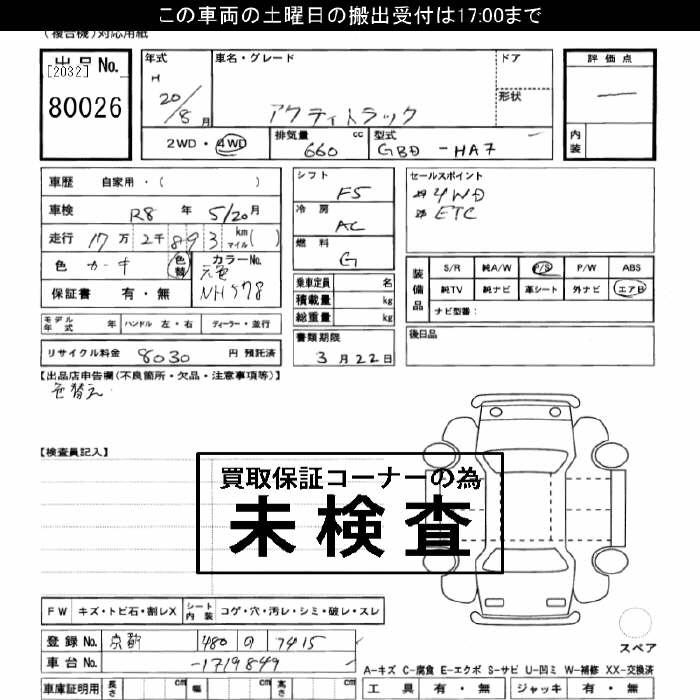 この車両の土曜日の搬出受付は17:00まで
(複合機)対応用紙
出品 No. [2032]
80026
年式 H 20/8 月
車名・グレード アクティトラック
ドア
形状
評価点 —
内装
2WD・4WD
排気量 660 cc
型式 GBD -HA7
車歴 自家用・( )
車検 R8 年 5/20 月
走行 17 万 2 千 8 9 3 km マイル ( )
色 カーキ 色替
カラーNo. 元色 NH578
保証書 有・無
シフト F5
冷房 AC
燃料 G
乗車定員 名
積載量 kg
総重量 kg
セールスポイント
4WD
ETC
装備品
S/R 純A/W P/S P/W ABS
純TV 純ナビ 革シート 外ナビ エアB
ナビ型番:
モデル年式 年 ハンドル 左・右 ディーラー・並行
書類期限 3 月 22 日
後日品
リサイクル料金 8030 円 預託済
【出品店申告欄(不良箇所・欠品・注意事項等)】
色替え
【検査員記入】
買取保証コーナーの為
未検査
FW キズ・トビ石・割レX シート内装 コゲ・穴・汚レ・シミ・破レ・スレ
登録 No. 京都 480 の 7415
車台 No. -1719849
スペア
A-キズ C-腐食 E-エクボ S-サビ U-凹ミ W-補修 XX-交換済
車庫証明用 長さ cm 幅 cm 高さ cm
工具 有・無 ジャッキ 有・無